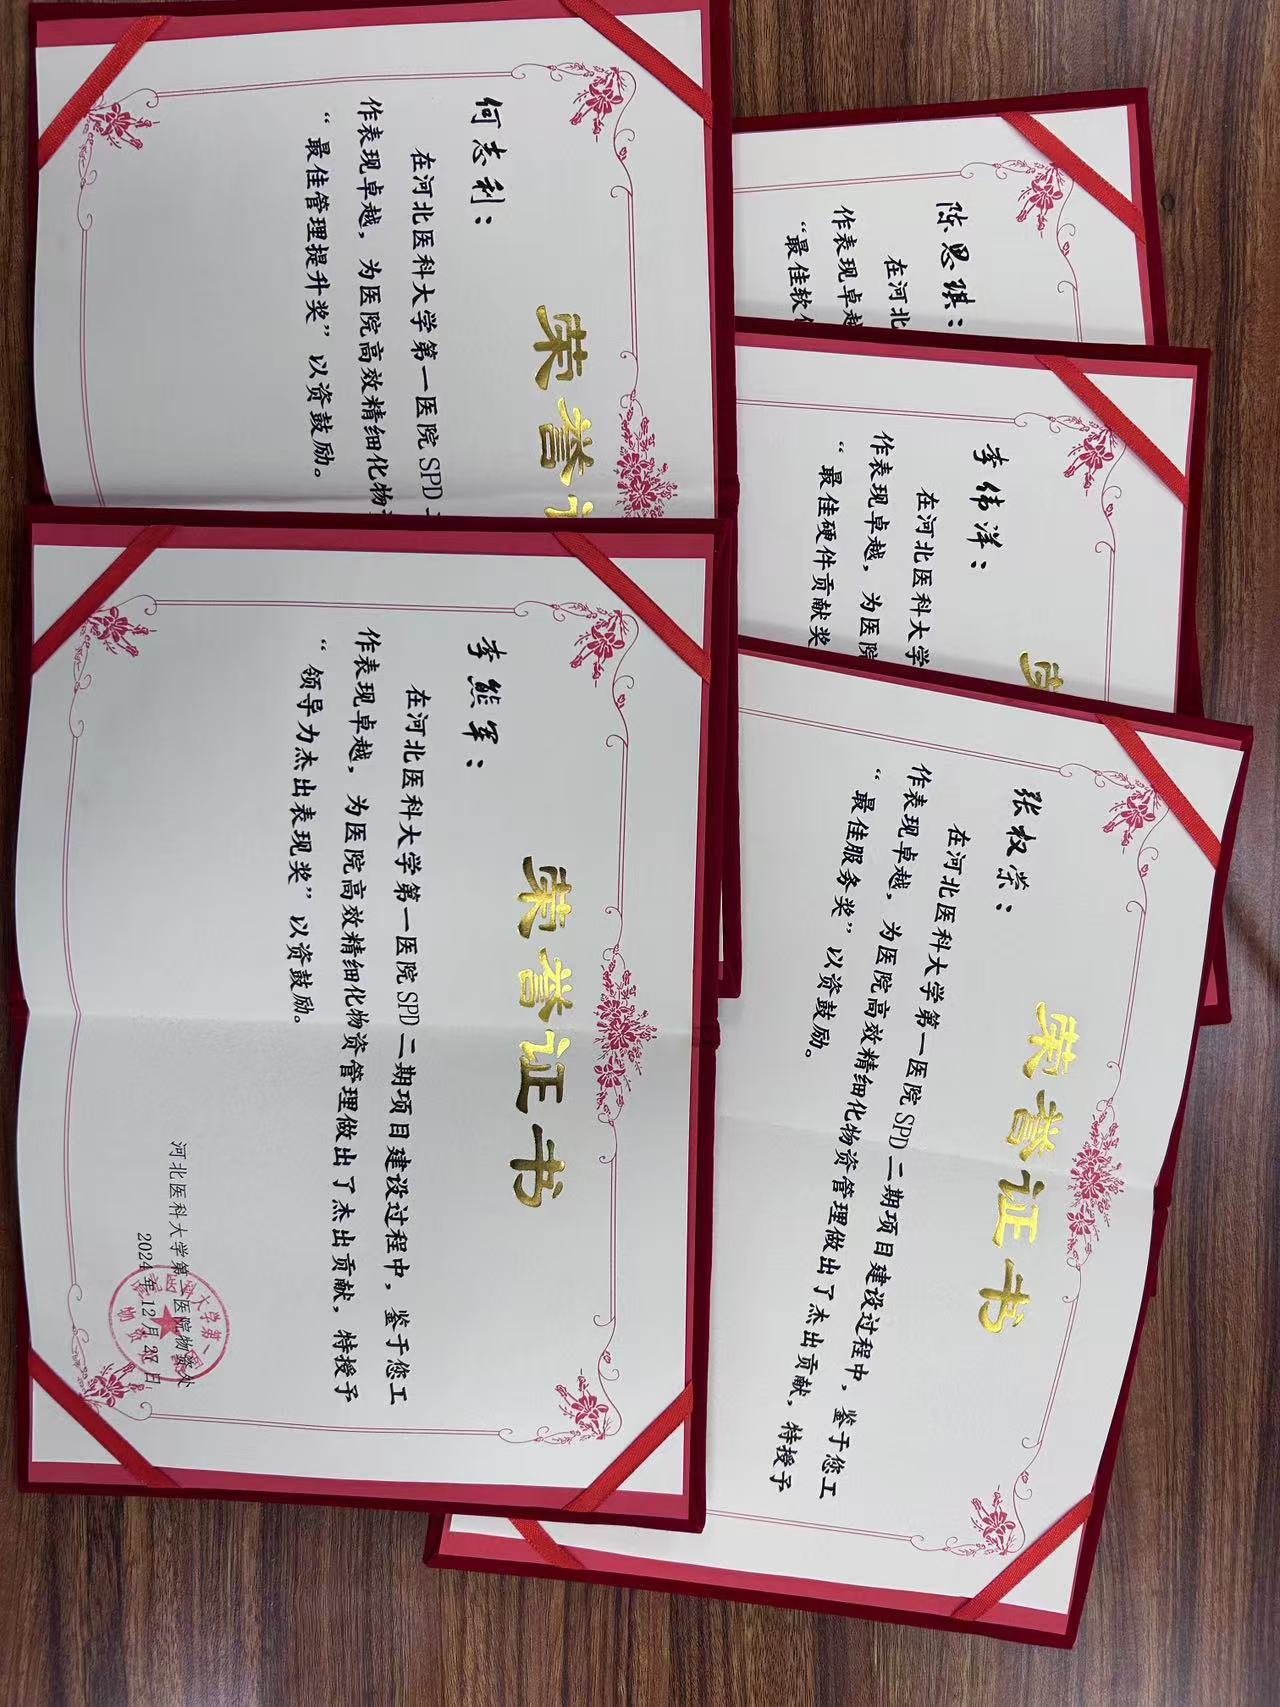 荣誉证
何志利：
在河北医科大学第一医院SPD二
作表现卓越，为医院高效精细化物
“最佳管理提升奖”以资鼓励。
陈思琪：
在河北
作表现卓越
“最佳软件
李伟洋：
在河北医科大学
作表现卓越，为医院
“最佳硬件贡献奖
荣誉证书
李熊军：
在河北医科大学第一医院SPD二期项目建设过程中，鉴于您工
作表现卓越，为医院高效精细化物资管理做出了杰出贡献，特授予
“领导力杰出表现奖”以资鼓励。
河北医科大学第一医院物资处
2024年12月27日
荣誉证书
张权荣：
在河北医科大学第一医院SPD二期项目建设过程中，鉴于您工
作表现卓越，为医院高效精细化物资管理做出了杰出贡献，特授予
“最佳服务奖”以资鼓励。